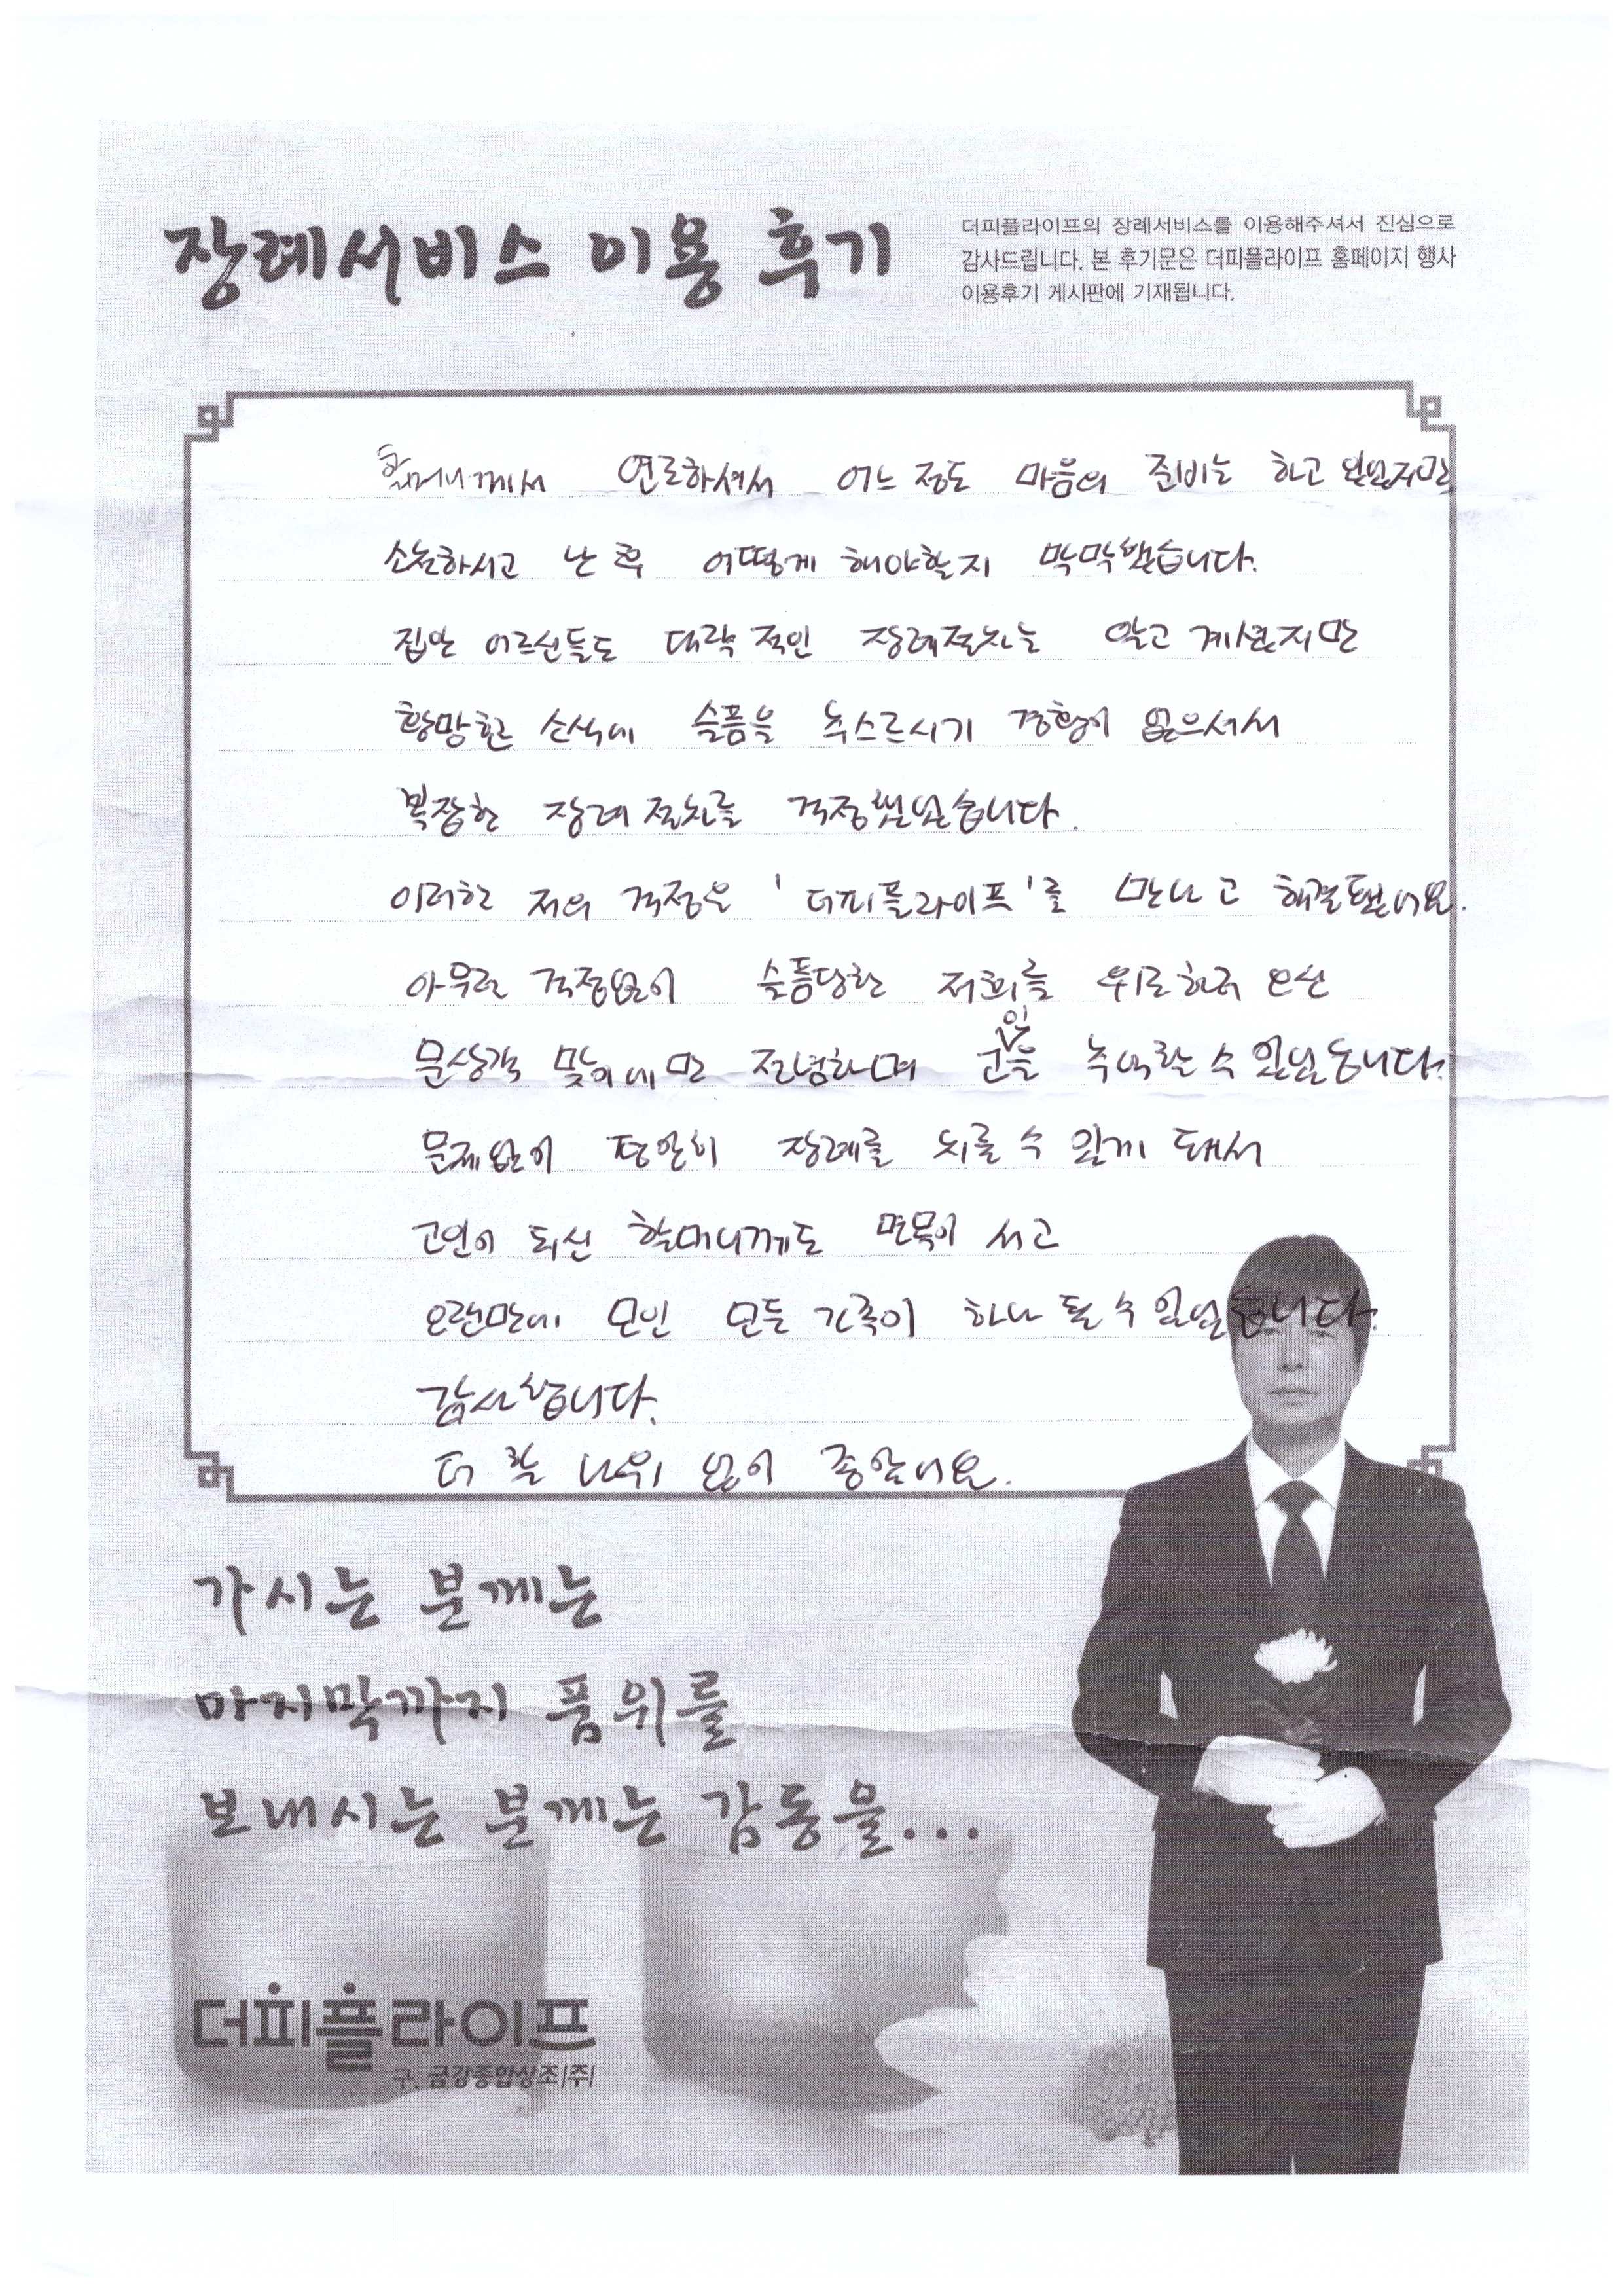 장례서비스 이용 후기
더피플라이프의 장례서비스를 이용해주셔서 진심으로
감사드립니다. 본 후기문은 더피플라이프 홈페이지 행사
이용후기 게시판에 기재됩니다.
할머니께서 연로하셔서 어느 정도 마음의 준비는 하고 있었지만
소천하시고 난 후 어떻게 해야할지 막막했습니다.
집안 어르신들도 대략적인 장례절차는 알고 계셨지만
황망한 소식에 슬픔을 추스르시기 경황이 없으셔서
복잡한 장례 절차를 걱정했었습니다.
이러한 저의 걱정은 '더피플라이프'를 만나고 해결됐어요.
아무런 걱정없이 슬픔당한 저희를 위로하러 오신
문상객 맞이에만 전념하며 고인을 추억할 수 있었습니다.
문제없이 편안히 장례를 치를 수 있게 돼서
고인이 되신 할머니께도 면목이 서고
오랜만에 모인 모든 가족이 하나 될 수 있었습니다.
감사합니다.
더 할 나위 없이 좋았어요.
가시는 분께는
마지막까지 품위를
보내시는 분께는 감동을...
더피플라이프
구. 금강종합상조(주)